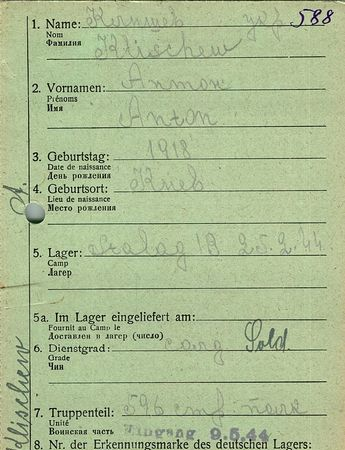 588
1. Name: Климшев
Nom
Фамилия
Klischew
2. Vornamen: Антон
Prénoms
Имя
Anton
3. Geburtstag: 1918
Date de naissance
День рождения
4. Geburtsort: Киев
Lieu de naissance
Место рождения
5. Lager: Stalag IB 25.2.44.
Camp
Лагерь
5a. Im Lager eingeliefert am:
Fournit au Camp le
Доставлен в лагерь (число)
6. Dienstgrad: Sold.
Grade
Чин
7. Truppenteil: 596 стр. полк
Unité
Воинская часть
Eingang 9.5.44
8. Nr. der Erkennungsmarke des deutschen Lagers:
Klischew A.